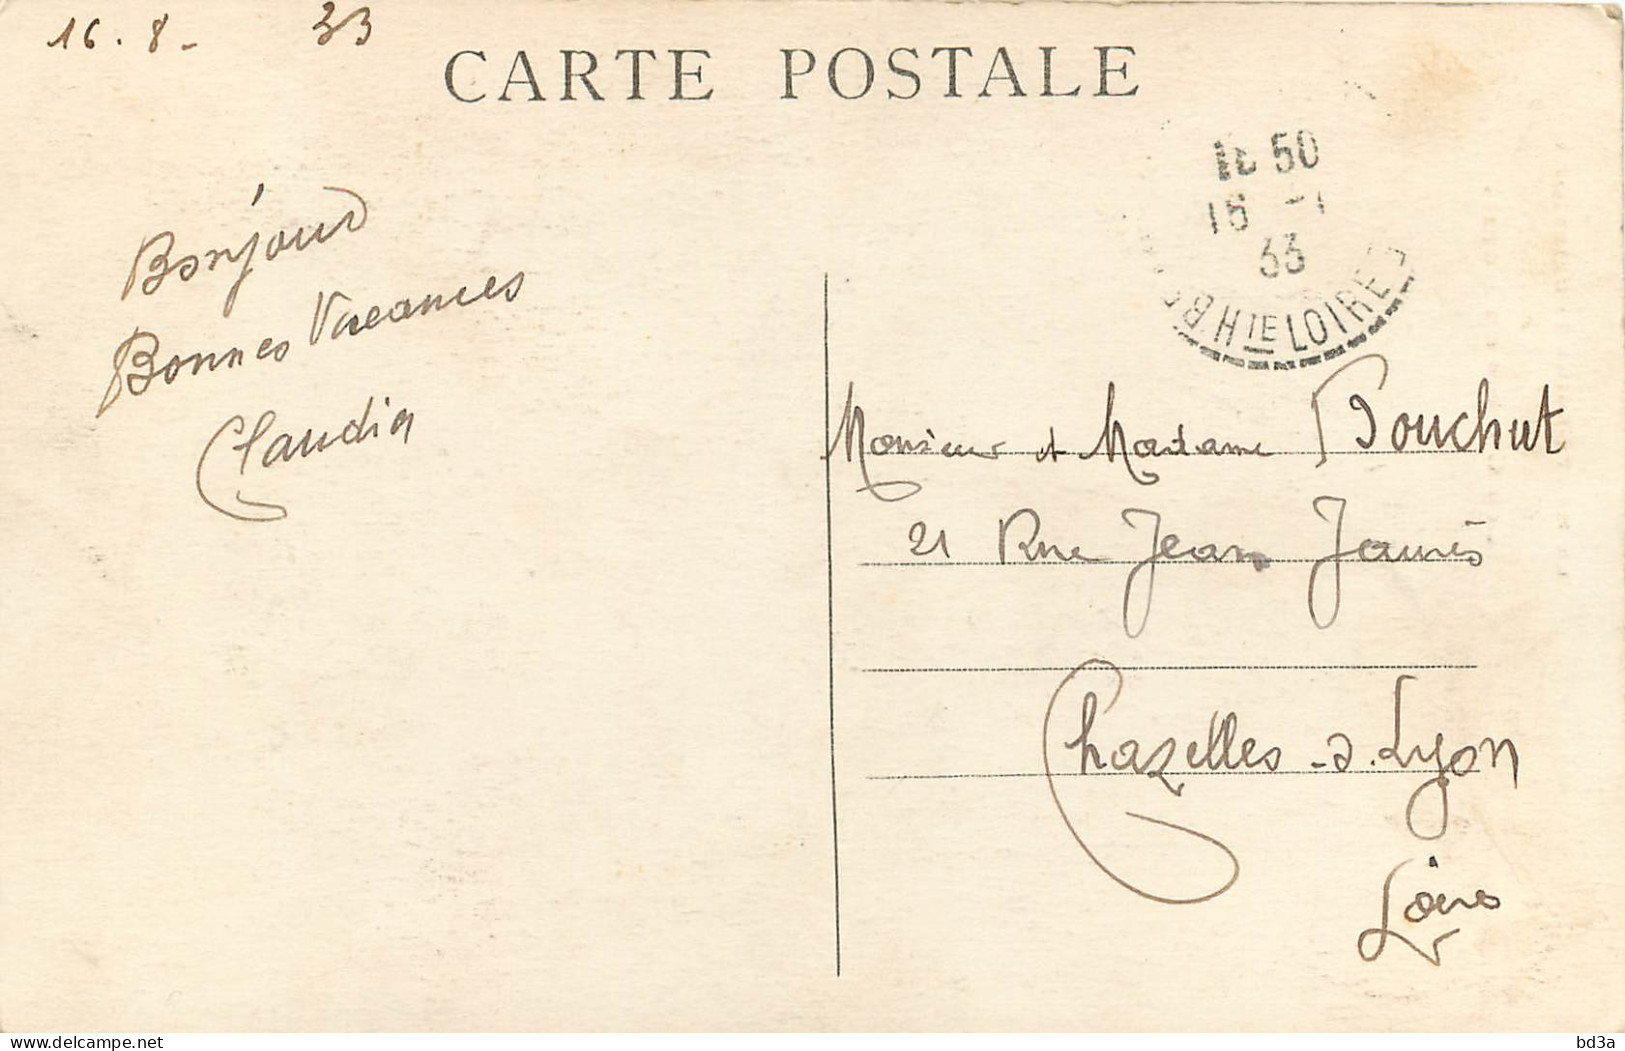 16.8- 33
CARTE POSTALE
50
16 -
33
Hte LOIRE
Bonjour
Bonnes Vacances
Claudia
Monsieur et Madame Pouchut
21 Rue Jean Jaurès
Chazelles-s.Lyon
Loire
delcampe.net
bd3a